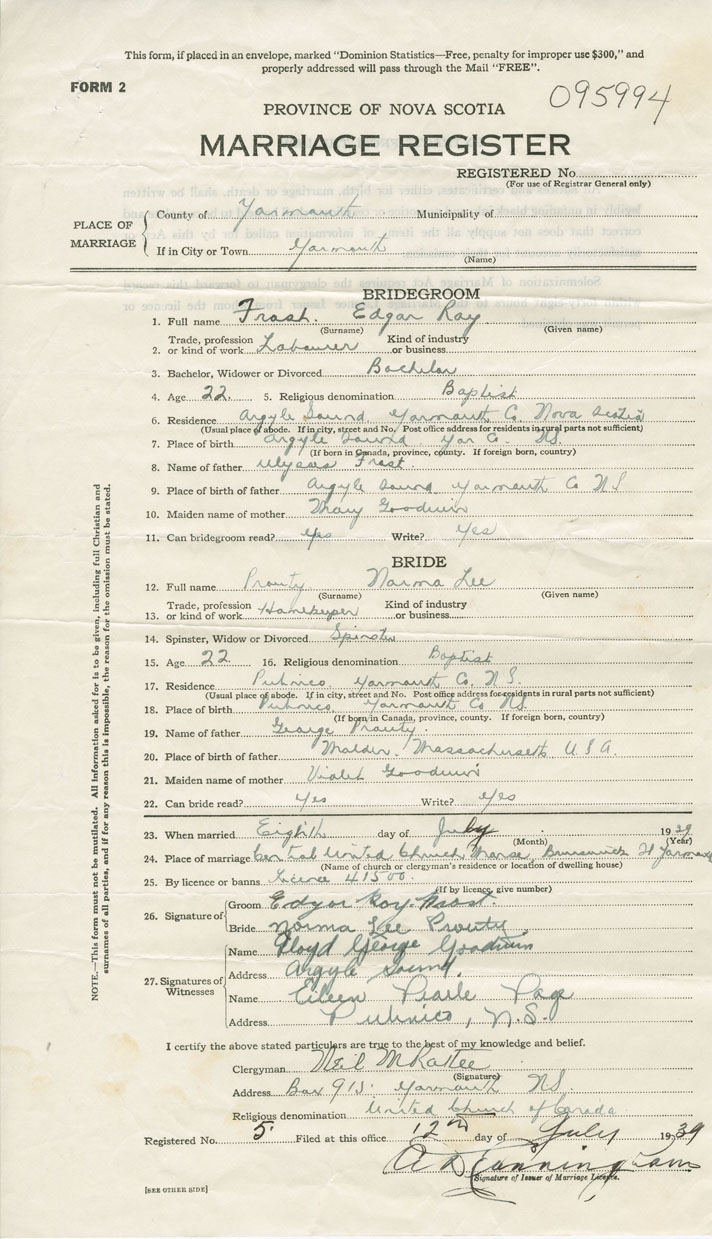 This form, if placed in an envelope, marked "Dominion Statistics—Free, penalty for improper use $300," and
properly addressed will pass through the Mail "FREE".
FORM 2
095994
PROVINCE OF NOVA SCOTIA
MARRIAGE REGISTER
REGISTERED No.
(For use of Registrar General only)
PLACE OF MARRIAGE
County of Yarmouth Municipality of
If in City or Town Yarmouth
(Name)
BRIDEGROOM
1. Full name Frost. Edgar Roy
(Surname) (Given name)
2. Trade, profession or kind of work Labourer Kind of industry or business
3. Bachelor, Widower or Divorced Bachelor
4. Age 22 5. Religious denomination Baptist
6. Residence Argyle Sound, Yarmouth Co Nova Scotia
(Usual place of abode. If in city, street and No. Post office address for residents in rural parts not sufficient)
7. Place of birth Argyle Sound Yar Co. N.S.
(If born in Canada, province, county. If foreign born, country)
8. Name of father Ulysses Frost.
9. Place of birth of father Argyle Sound, Yarmouth Co N S
10. Maiden name of mother Mary Goodwin
11. Can bridegroom read? Yes Write? Yes
BRIDE
12. Full name Prouty Norma Lee
(Surname) (Given name)
13. Trade, profession or kind of work Homekeeper Kind of industry or business
14. Spinster, Widow or Divorced Spinster
15. Age 22 16. Religious denomination Baptist
17. Residence Pubnico, Yarmouth Co. N.S.
(Usual place of abode. If in city, street and No. Post office address for residents in rural parts not sufficient)
18. Place of birth Pubnico, Yarmouth Co N.S.
(If born in Canada, province, county. If foreign born, country)
19. Name of father George Prouty.
20. Place of birth of father Malden, Massachusetts U.S.A.
21. Maiden name of mother Violet Goodwin
22. Can bride read? Yes Write? Yes
23. When married Eighth day of July 1939
(Month) (Year)
24. Place of marriage Central United Church Manse, Brunswick St Yarmouth
(Name of church or clergyman's residence or location of dwelling house)
25. By licence or banns Licence 41500.
(If by licence, give number)
26. Signature of
Groom Edgar Roy Frost
Bride Norma Lee Prouty.
27. Signatures of Witnesses
Name Floyd George Goodwin
Address Argyle Sound.
Name Eileen Pearle Page
Address Pubnico, N.S.
I certify the above stated particulars are true to the best of my knowledge and belief.
Clergyman Neil McRattee
(Signature)
Address Box 913. Yarmouth NS
Religious denomination United Church of Canada
Registered No. 5. Filed at this office 12nd day of July 1939
Signature of Issuer of Marriage Licence.
[SEE OTHER SIDE]
NOTE.—This form must not be mutilated. All information asked for is to be given, including full Christian and
surnames of all parties, and if for any reason this is impossible, the reason for the omission must be stated.